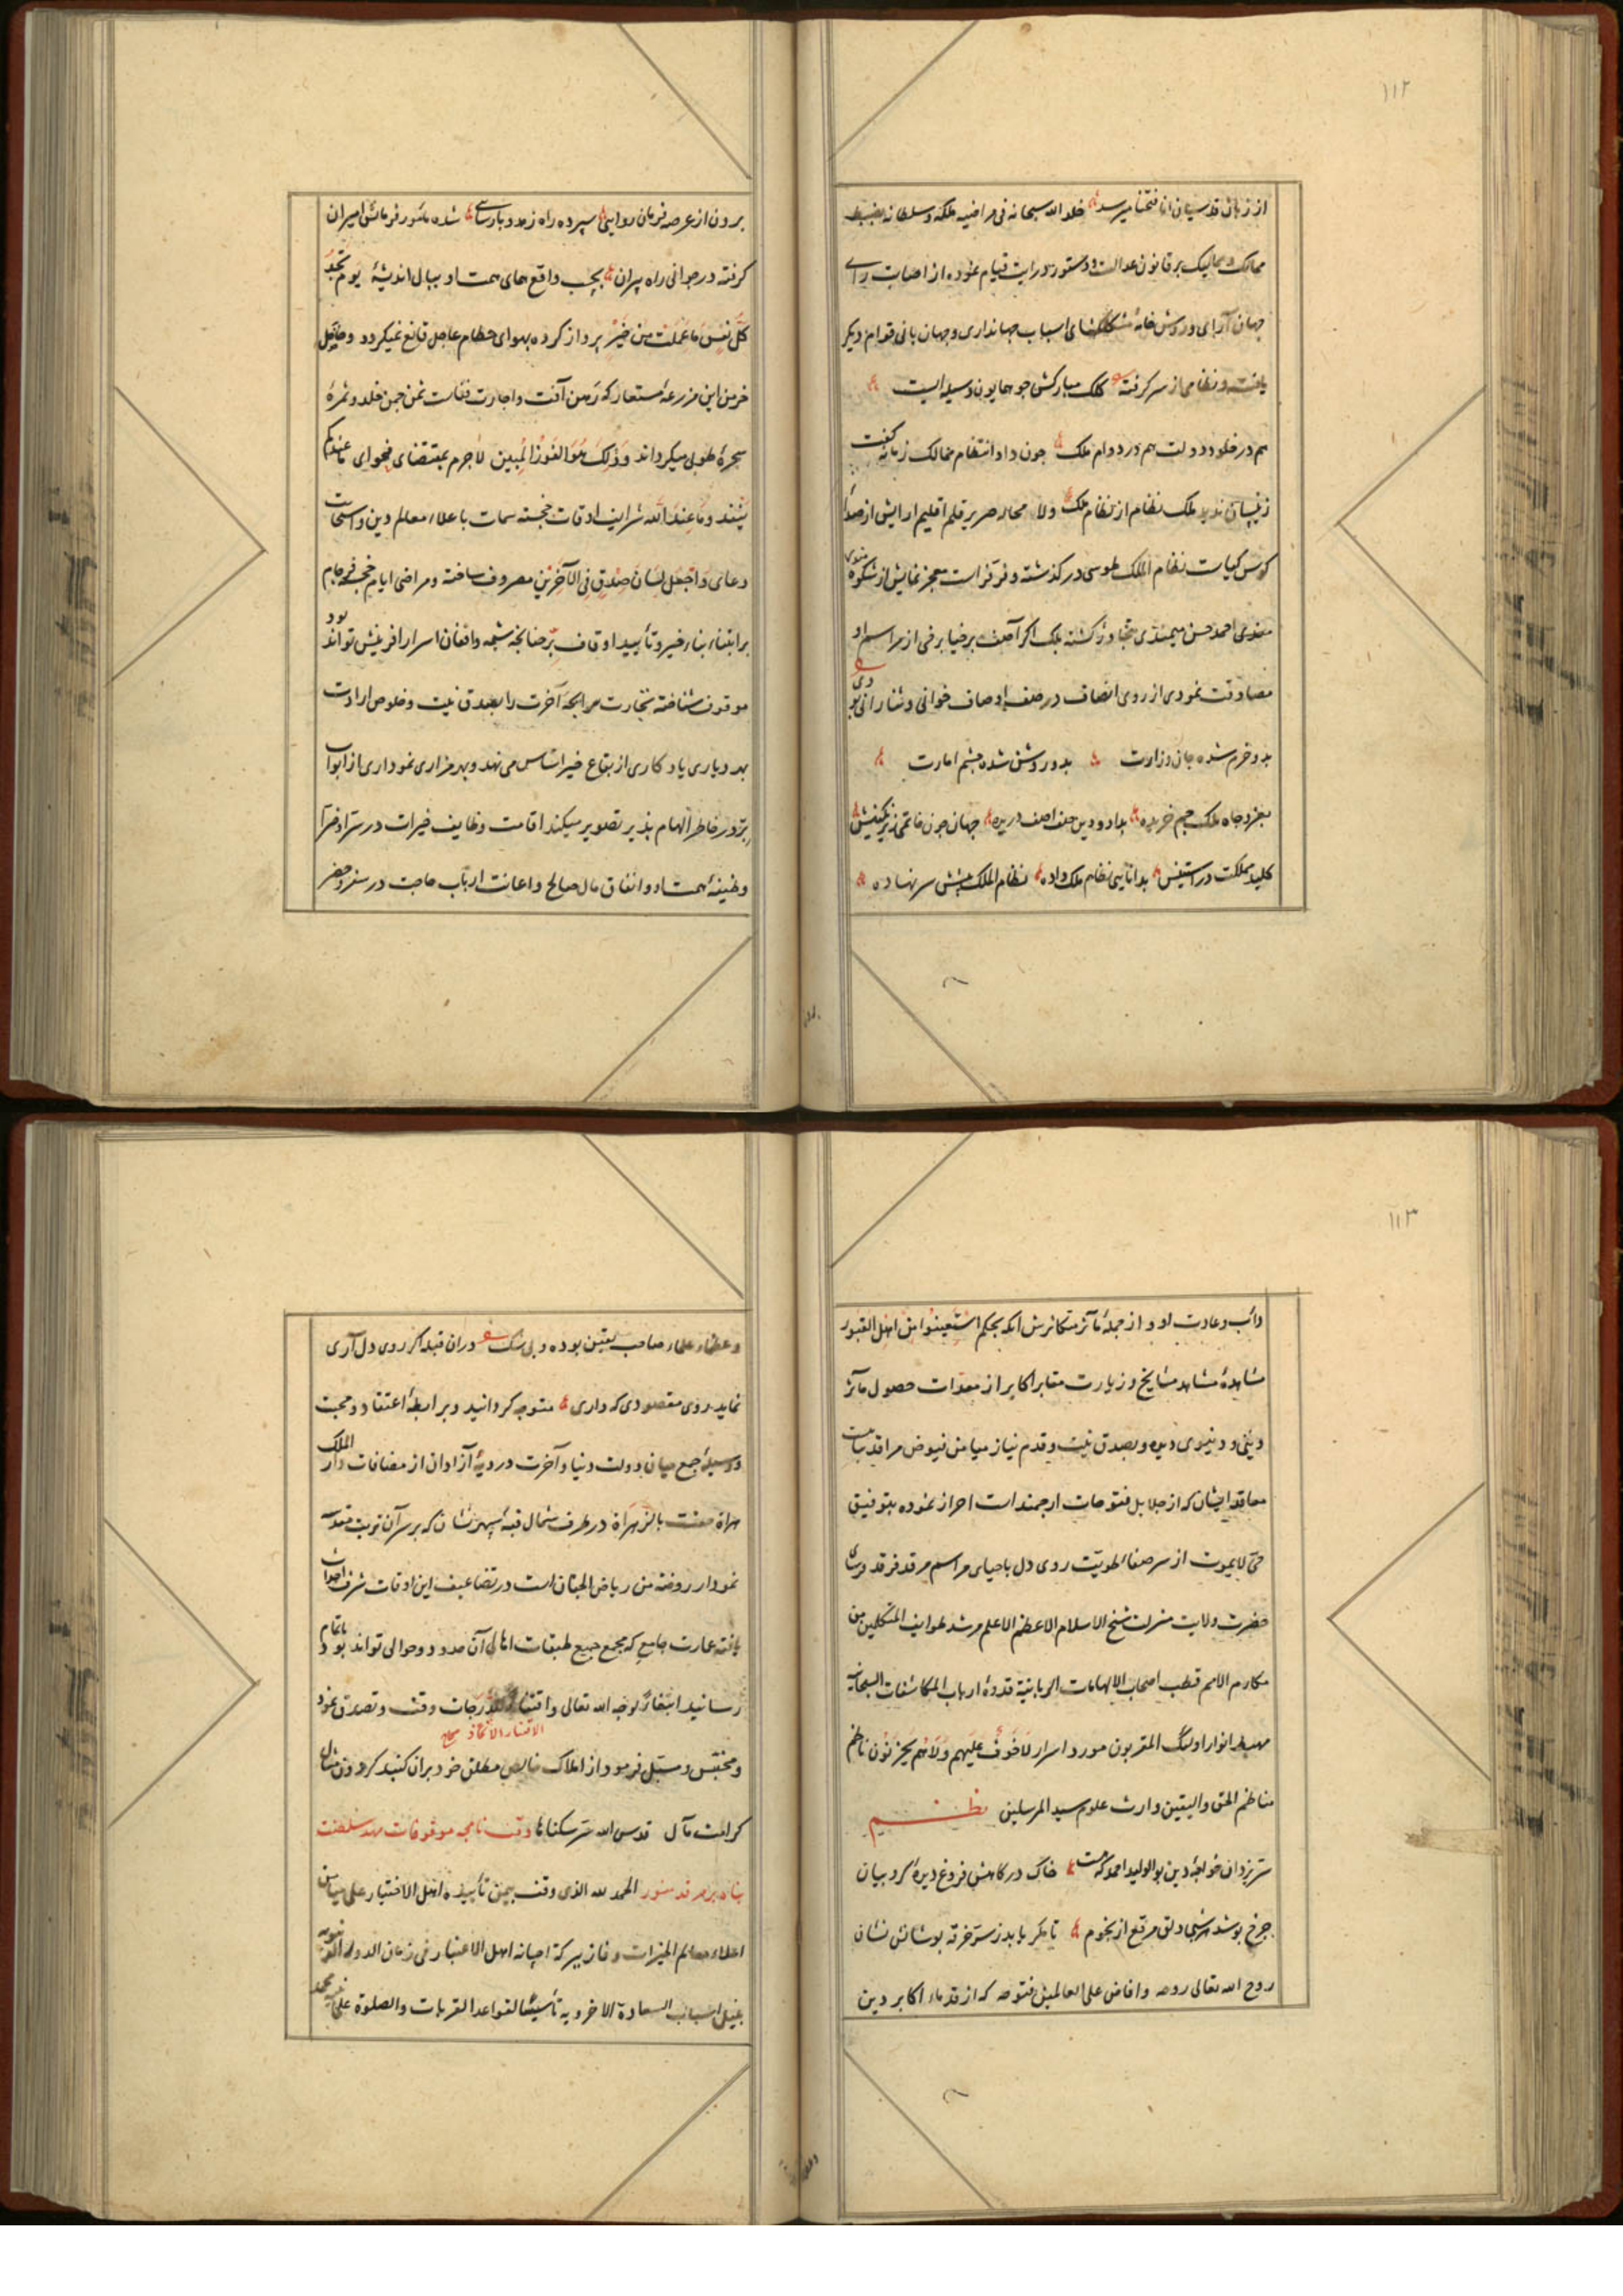 ۱۱۲
از زبان قدسیان انا فتحنا میرسد خلد الله سبحانه فی مراضیه ملکه و سلطانه بضبط
ممالک و ممالیک بر قانون عدالت و دستور درایت قیام نموده از اصابت رای
جهان آرای و روش خامهٔ مشکلگشای اسباب جهانداری و جهان بانی قوام دیگر
یافته و نظامی از سر گرفته کلک مبارکش چو همایون وسیله ایست
هم در خلود دولت هم در دوام ملک چون داد انتظام ممالک زمانه گفت
زینسان ندید ملک نظام از نظام ملک ولا محاله صریر قلم اقلیم آرایش از صدای
کوس کیاست نظام الملک طوسی درگذشته و فر معجز نمایش از شکوه
احمد حسن میمندی متجاوز گشته بلک اگر آصف برخیا برخی از مراسم او
مصادفت نمودی از روی انصاف در صف اوصاف خوانی و ثنا رانی بودی
بدو خرم شده جان وزارت بدو روشن شده چشم امارت
بعز و جاه ملک جم خریده بداد و دین صف آصف دریده جهان چون خاتمی زیر نگینش
کلید مملکت در آستینش بدانایی نظام ملک داده نظام الملک پیشش سر نهاده
برون از عرصه فرمان روایی سپرده راه زهد و پارسایی شده مأمور فرمانش امیران
گرفته در جوانی راه پیران بچسب واقع همای همت او ببال اندیشهٔ یوم تجد
کل نفس ما عملت من خیر پرواز کرده بهوای حطام عاجل قانع نمیگردد و حاصل
خرمن این مزرعهٔ مستعار که رهن آفت و اجارت فناست ثمن چمن خلد و ثمرهٔ
شجرهٔ طوبی میگرداند و ذلک هو الفوز المبین لاجرم بمقتضای فحوای ما عندکم
ینفد و ما عند الله شرایف اوقات خجسته سمات باعلاء معالم دین و
دعای و اجعل لی لسان صدق فی الآخرین مصروف ساخته و مراضی ایام خجسته فرجام
بر ابتناء بناء خیر و تأیید اوقاف برّ چنانچه شیمه واقفان اسرار آفرینش تواند بود
موقوف شناخته تجارت مرابحهٔ آخرت را بصدق نیت و خلوص ارادت
بهر دیاری یادگاری از بقاع خیر اساس می نهد و بهر مزاری نموداری از ابواب
برّ در خاطر الهام پذیر تصویر میکند اقامت وظایف خیرات در سرّا و ضرّا
وظیفهٔ همت او و انفاق مال صالح و اعانت ارباب حاجت در سفر و حضر
۱۱۳
دأب و عادت او و از جملهٔ مآثر متکاثرش آنکه بحکم استعینوا من اهل القبور
مشاهدهٔ مشاهد مشایخ و زیارت مقابر اکابر از معدّات حصول مآثر
دینی و دنیوی دیده و بصدق نیت و قدم نیاز میامن فیوض مراقد
معاقد ایشان که از جلایل فتوحات ارجمند است احراز نموده بتوفیق
حیّ لا یموت از سر صفاء طویّت روی دل باحیای مراسم مرقد فرقد فرسای
حضرت ولایت منزلت شیخ الاسلام الاعظم الاعلم مرشد طوایف المتکلین من
مکارم الامم قطب اصحاب الالهامات الربانیة قدوهٔ ارباب المکاشفات السبحانیة
مهبط انوار اولئک المقربون مورد اسرار لا خوف علیهم ولا هم یحزنون ناظم
مناظم الحق و الیقین وارث علوم سید المرسلین نظم
سرّ یزدان خواجهٔ دین بو الولید احمد که هست خاک درگاهش فروغ دیدهٔ کروبیان
چرخ پوشد هر شبی دلق مرقع از نجوم تا مگر یابد ز ستر خرقه پوشانش نشان
روح الله تعالی روحه و افاض علی العالمین فتوحه که از قدماء اکابر دین
و عظماء علماء صاحب یقین بوده و بی شک در آن قبله گر روی دل آری
نماید روی مقصودی که داری متوجه گردانید و برابطهٔ اعتقاد و محبت
و وسیلهٔ جمع میان دولت دنیا و آخرت در دیهٔ آزادان از مضافات دار الملک
هراة در طرف شمال قبهٔ سپهر نشان که بر سر آن تربت مقدسه
نمودار روضه من ریاض الجنان است در تضاعیف این اوقات شرف
یافته عمارت جامع که مجمع جمیع طبقات اهالی آن حدود و حوالی تواند بود باتمام
رسانید ابتغاءً لوجه الله تعالی و اقتناء درجات وقف و تصدق نمود
الاقتناء الاتخاذ صحاح
و محتبس و مسبّل فرمود از املاک خالص مطلق خود بر آن گنبد گردون مثال
کرامت مآل قدس الله سرّ سکانها وقف نامچه موقوفات مهد سلطنت
پناه بر مرقد منور الحمد لله الذی وقف بیمن تأییده اهل الاختیار علی میامن
اعلاء معالم الخیرات و فاز ببرکة اهل الاعتبار فی زمان الدولة
بنیل اسباب السعادة الاخرویه تأسیسًا لقواعد القربات و الصلوة علی محمد